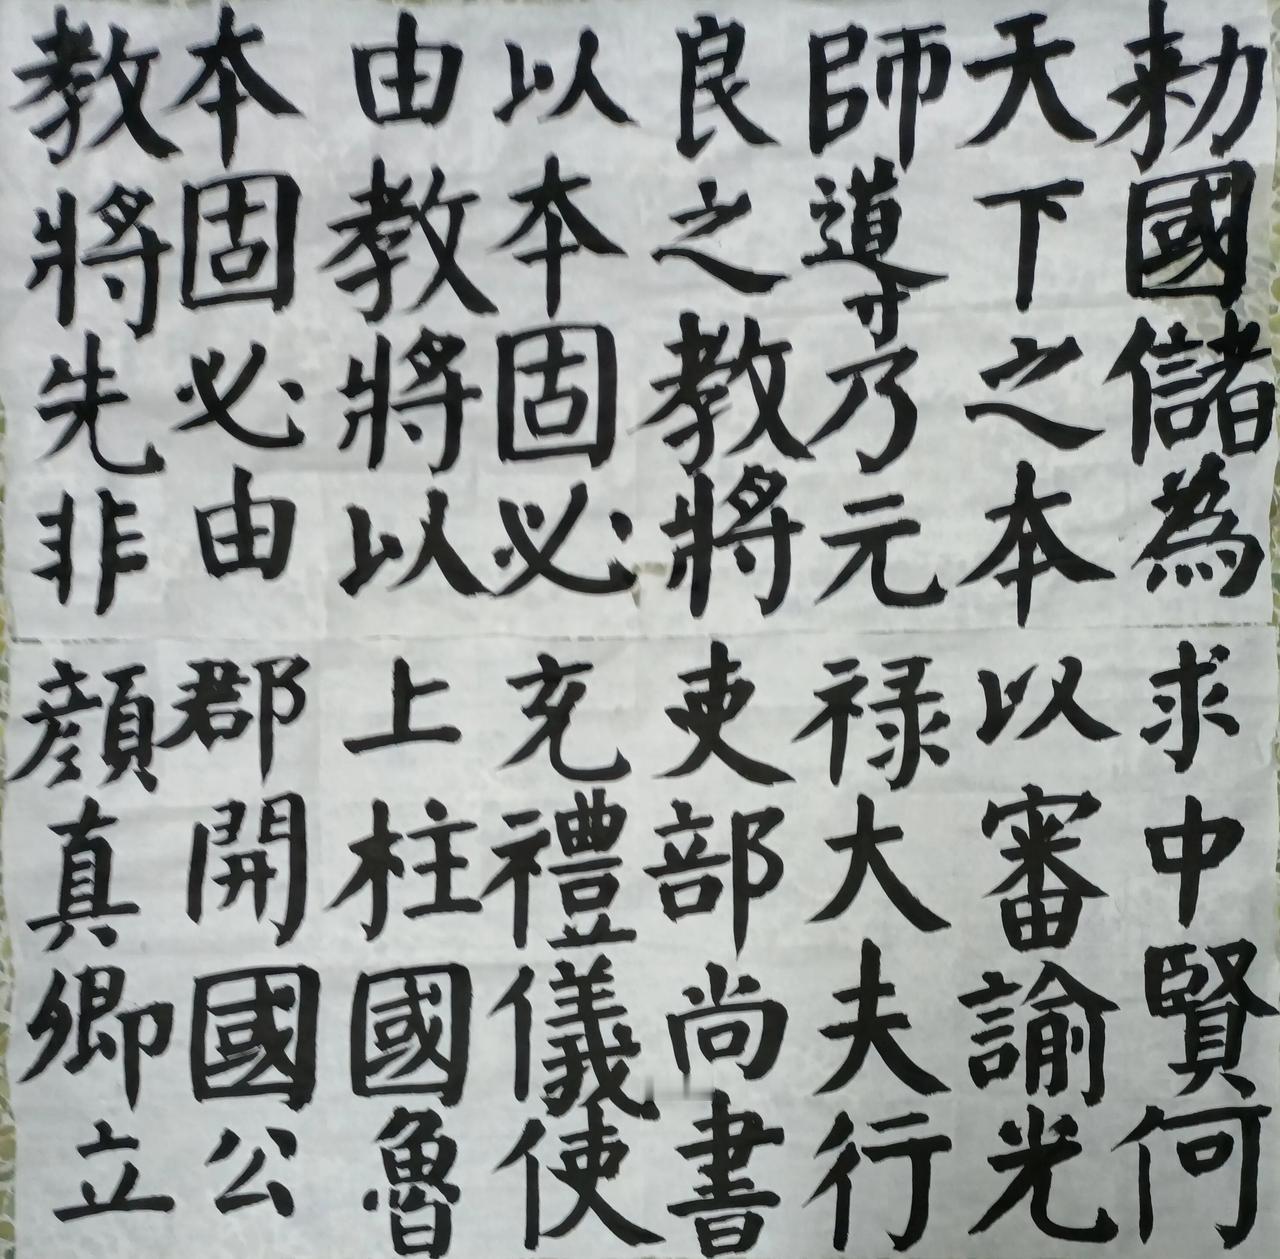 勑國儲為
天下之本
師導乃元
良之教將
以本固必
由教將以
本固必由
教將先非
求中賢何
以審諭光
禄大夫行
吏部尚書
充禮儀使
上柱國魯
郡開國公
顔真卿立